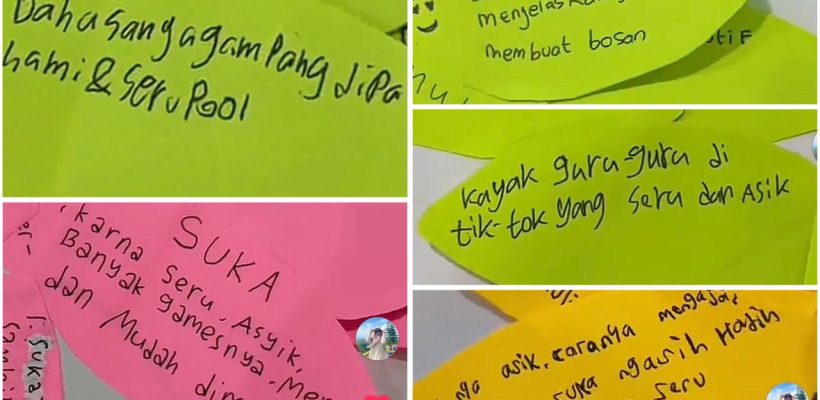 bahasanya gampang dipa
hami & seru pool
menjelaskan
membuat bosan
kayak guru-guru di
tik-tok yang seru dan Asik
SUKA
karna seru, Asyik,
Banyak gamesnya.
dan Mudah
asik. caranya mengajar
suka ngasih Hadih
seru